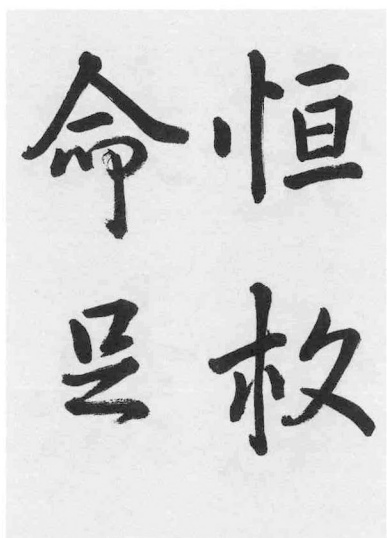 恒枚
命足